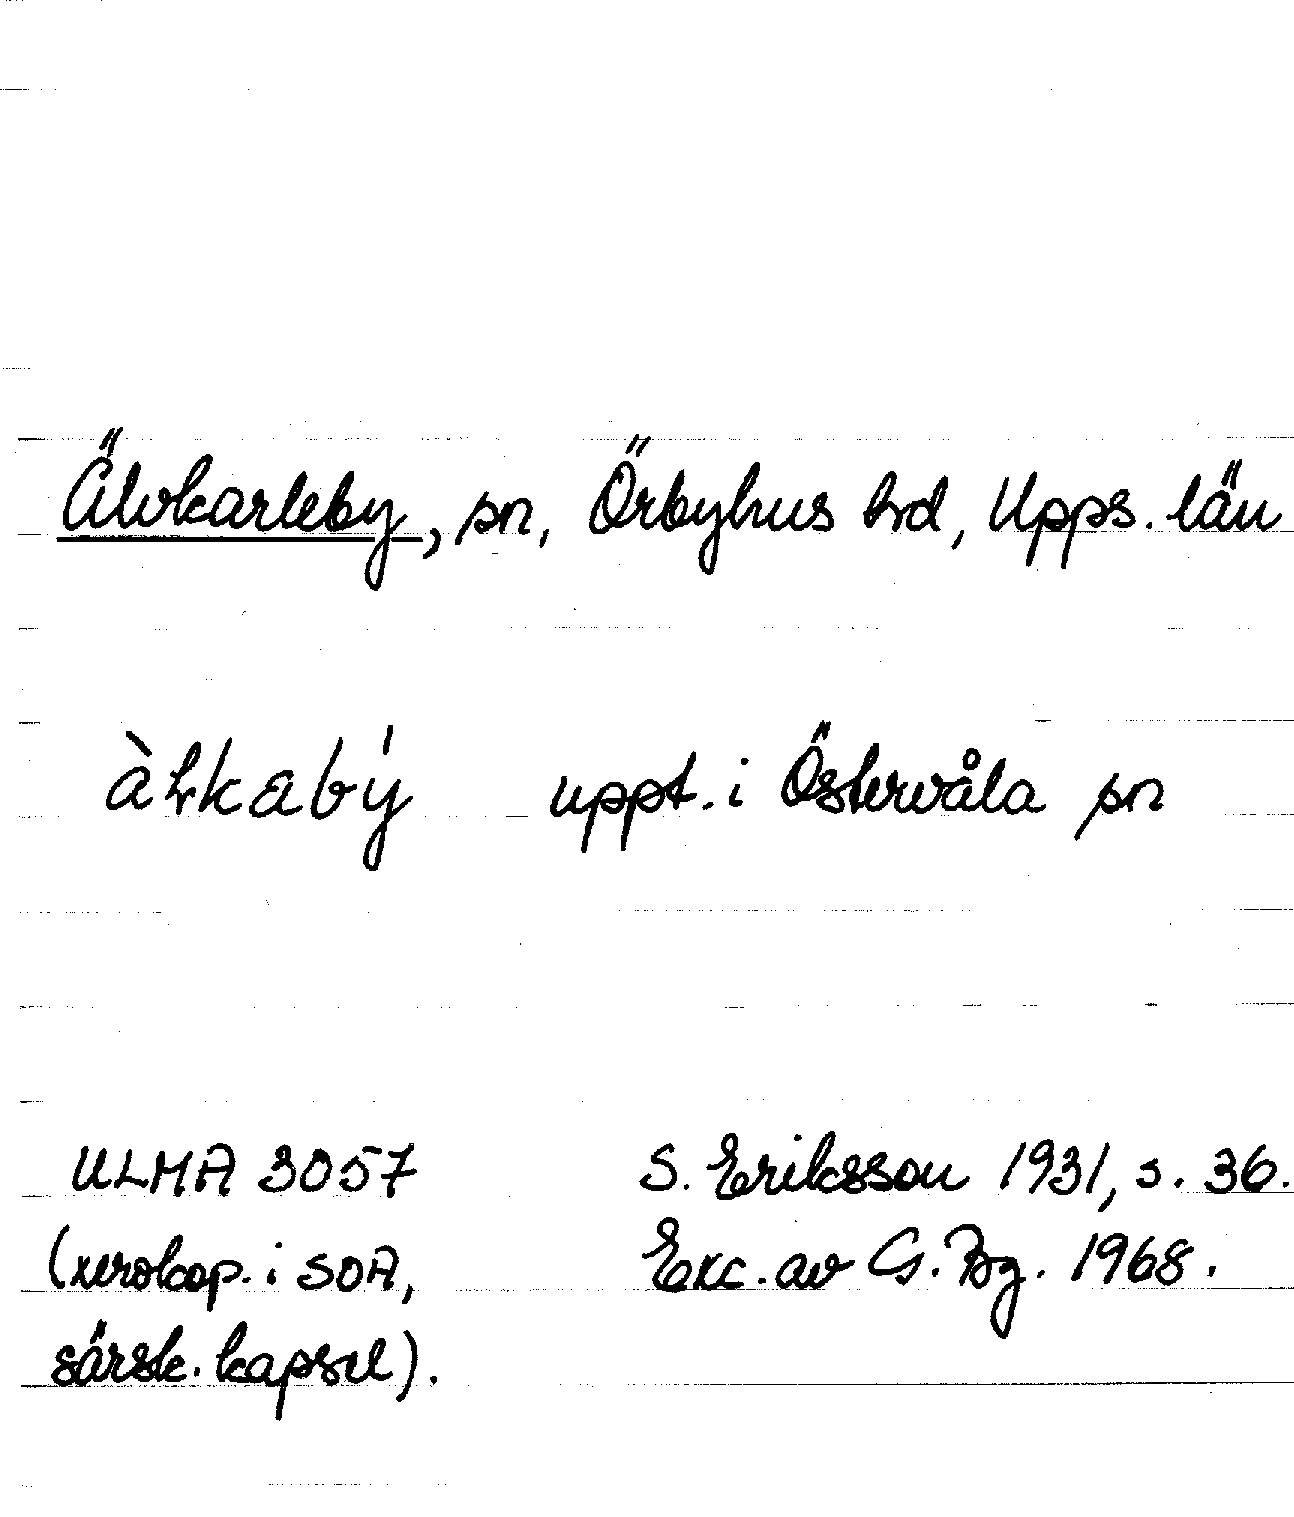 Älvkarleby, sn, Örbyhus hd, Upps. län
àƚkabý uppt. i Östervåla sn
ULMA 3057 S. Eriksson 1931, s. 36.
(xerokop. i SOA, Exc. av G. Bg. 1968.
särsk. kapsel).